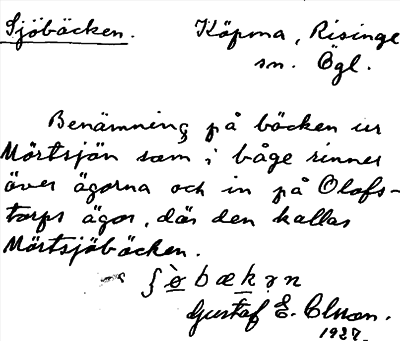 Sjöbäcken. Köpma, Risinge
sn. Ögl.
Benämning på bäcken ur
Mörtsjön som i båge rinner
över ägorna och in på Olofs-
torps ägor, där den kallas
Mörtsjöbäcken.
Gustaf E. Olsson.
1927.